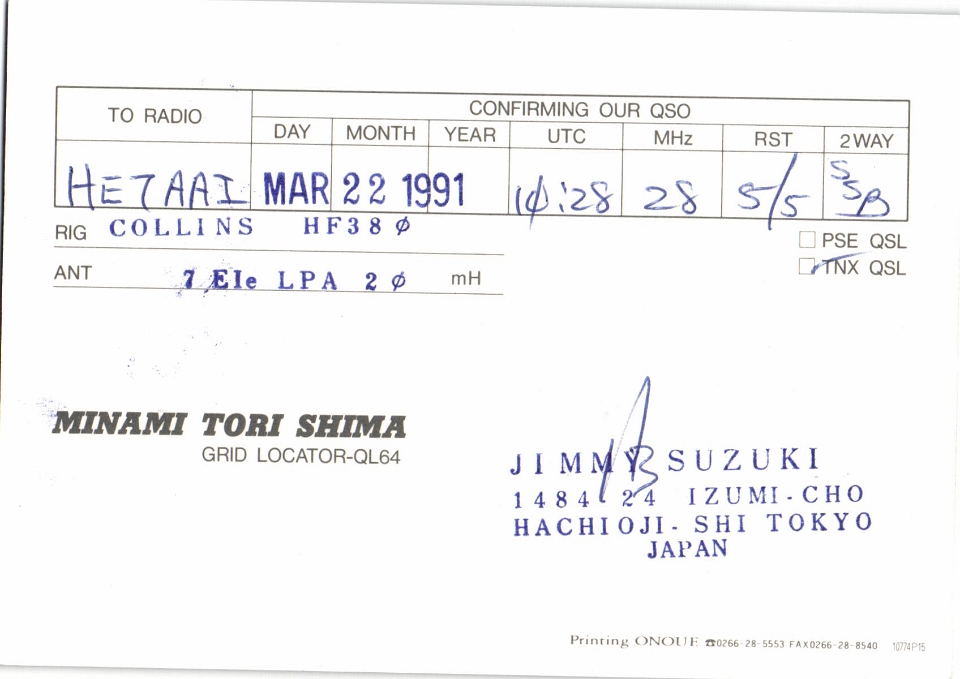 TO RADIO
CONFIRMING OUR QSO
DAY MONTH YEAR UTC MHz RST 2WAY
HE7AAI MAR 22 1991 1Ø:28 28 5/5 SSB
RIG COLLINS HF38Ø
PSE QSL
ANT 7 Ele LPA 2Ø mH
TNX QSL
MINAMI TORI SHIMA
GRID LOCATOR-QL64
JIMMY SUZUKI
1484-24 IZUMI-CHO
HACHIOJI-SHI TOKYO
JAPAN
Printing ONOUE ☎0266-28-5553 FAX0266-28-8540 10774P15